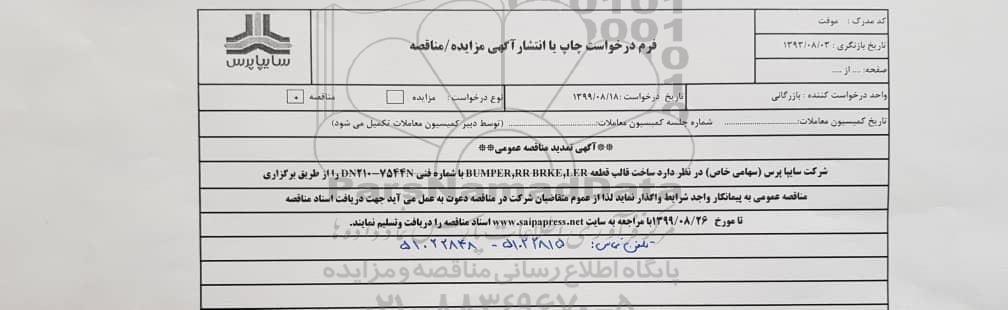 کد مدرک : موقت
تاریخ بازنگری : ۱۳۹۳/۰۸/۰۳
صفحه: ... از ...
فرم درخواست چاپ یا انتشار آگهی مزایده/مناقصه
سایپاپرس
واحد درخواست کننده : بازرگانی
تاریخ درخواست : ۱۳۹۹/۰۸/۱۸
نوع درخواست : مزایده مناقصه
تاریخ کمیسیون معاملات: .......... شماره جلسه کمیسیون معاملات: .......... (توسط دبیر کمیسیون معاملات تکمیل می شود)
**آگهی تمدید مناقصه عمومی**
شرکت سایپا پرس (سهامی خاص) در نظر دارد ساخت قالب قطعه BUMPER,RR BRKE,LER با شماره فنی DN۲۱۰-۷۵۴۴N را از طریق برگزاری
مناقصه عمومی به پیمانکار واجد شرایط واگذار نماید لذا از عموم متقاضیان شرکت در مناقصه دعوت به عمل می آید جهت دریافت اسناد مناقصه
تا مورخ ۱۳۹۹/۰۸/۲۶ با مراجعه به سایت www.saipapress.net اسناد مناقصه را دریافت وتسلیم نمایند.
تلفن تماس: ۵۱۰۲۲۸۱۵ - ۵۱۰۲۲۸۴۸
ParsNamadData
پایگاه اطلاع رسانی مناقصه و مزایده
۰۲۱-۸۸۳۴۹۶۷۰-۵